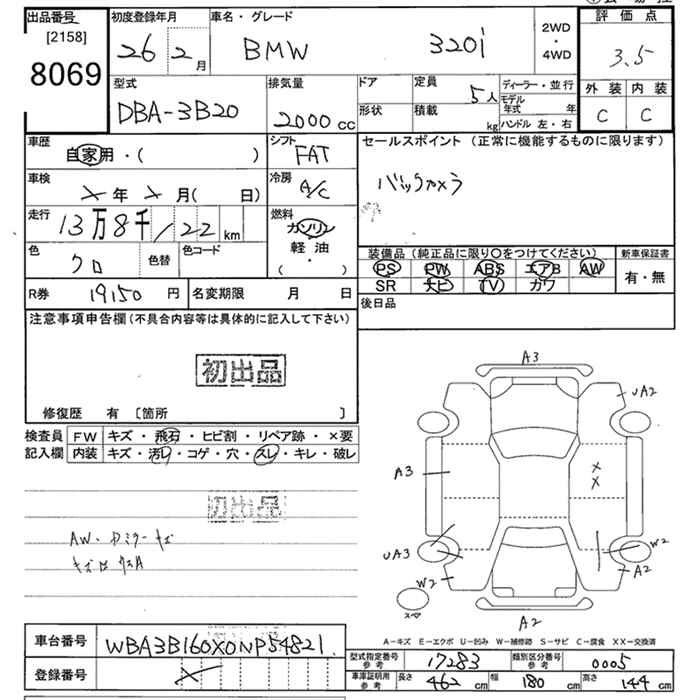 出品番号 初度登録年月 車名・グレード 評価点
[2158]
8069
26 2月 BMW 320i 2WD・4WD 3.5
型式 排気量 ドア 定員 ディーラー・並行 外装 内装
DBA-3B20 2000cc 5人 モデル年式 年 C C
形状 積載 kg ハンドル 左・右
車歴 シフト セールスポイント (正常に機能するものに限ります)
自家用・( ) FAT
バックカメラ
車検 冷房
×年×月( 日) A/C
走行 燃料
13万8千122km ガソリン
軽油
( ・ )
色 色替 色コード 装備品 (純正品に限り○をつけてください) 新車保証書
クロ PS PW ABS エアB AW 有・無
SR ナビ TV ガワ
R券 19150円 名変期限 月 日 後日品
注意事項申告欄 (不具合内容等は具体的に記入して下さい)
初出品
修復歴 有 [箇所 ]
検査員 FW キズ・飛石・ヒビ割・リペア跡・×要
記入欄 内装 キズ・汚レ・コゲ・穴・スレ・キレ・破レ
初出品
AW・ドアミラーキズ
A3
UA2
A3
×
×
UA3
W2
W2
A2
スペア
A2
A-キズ E-エクボ U-凹み W-補修跡 S-サビ C-腐食 XX-交換済
車台番号 WBA3B160X0NP54821
型式指定番号 参考 17283 類別区分番号 参考 0005
登録番号 ×
車庫証明用 参考 長さ 462cm 幅 180cm 高さ 144cm